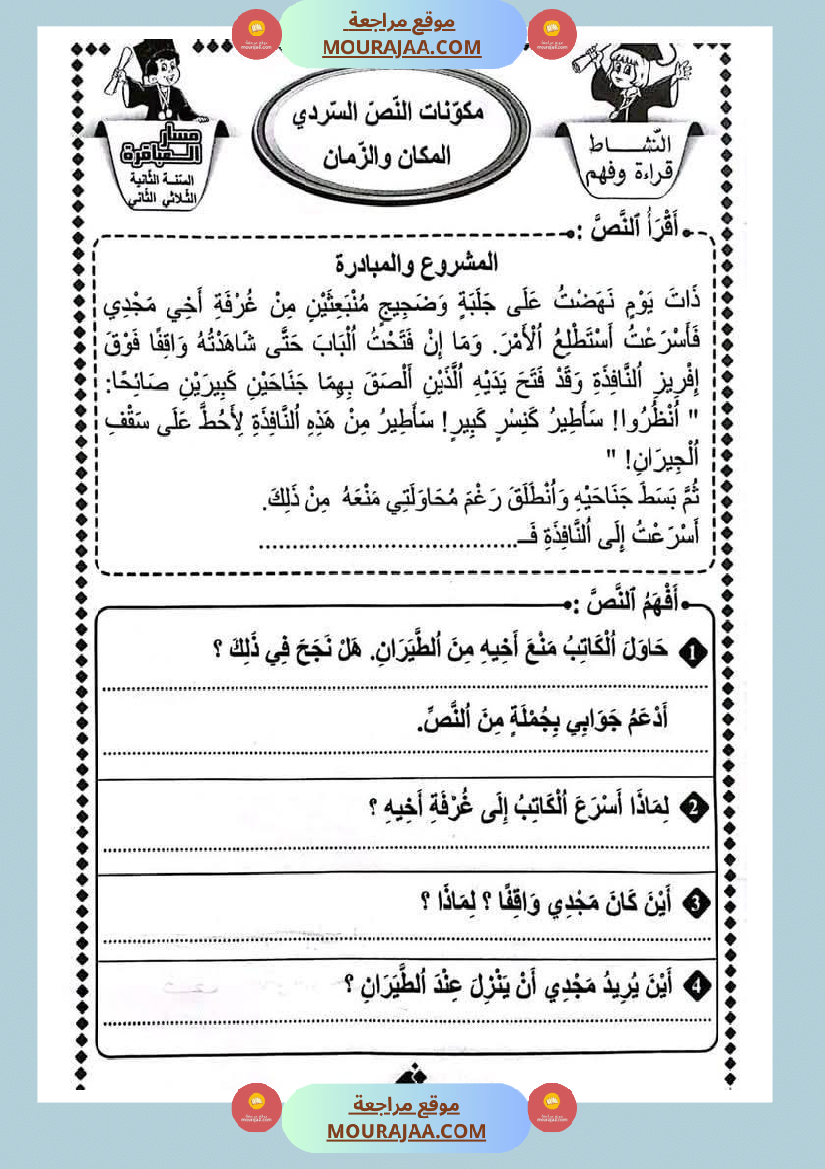 موقع مراجعة
MOURAJAA.COM
موقع مراجعة
mourajaa.com
موقع مراجعة
mourajaa.com
النّشــاط
قراءة وفهم
مكوّنات النّصّ السّردي
المكان والزّمان
مسار
العباقرة
السّنة الثّانية
الثّلاثي الثّاني
أَقْرَأُ ٱلنَّصَّ :
المشروع والمبادرة
ذَاتَ يَوْمٍ نَهَضْتُ عَلَى جَلَبَةٍ وَضَجِيجٍ مُنْبَعِثَيْنِ مِنْ غُرْفَةِ أَخِي مَجْدِي
فَأَسْرَعْتُ أَسْتَطْلِعُ ٱلْأَمْرَ. وَمَا إِنْ فَتَحْتُ ٱلْبَابَ حَتَّى شَاهَدْتُهُ وَاقِفًا فَوْقَ
إِفْرِيزِ ٱلنَّافِذَةِ وَقَدْ فَتَحَ يَدَيْهِ ٱلَّذَيْنِ أَلْصَقَ بِهِمَا جَنَاحَيْنِ كَبِيرَيْنِ صَائِحًا:
" ٱُنْظُرُوا! سَأَطِيرُ كَنِسْرٍ كَبِيرٍ! سَأَطِيرُ مِنْ هَذِهِ ٱلنَّافِذَةِ لِأَحُطَّ عَلَى سَقْفِ
ٱلْجِيرَانِ! "
ثُمَّ بَسَطَ جَنَاحَيْهِ وَٱنْطَلَقَ رَغْمَ مُحَاوَلَتِي مَنْعَهُ مِنْ ذَلِكَ.
أَسْرَعْتُ إِلَى ٱلنَّافِذَةِ فَــ......................................
أَفْهَمُ ٱلنَّصَّ :
1 حَاوَلَ ٱلْكَاتِبُ مَنْعَ أَخِيهِ مِنَ ٱلطَّيَرَانِ. هَلْ نَجَحَ فِي ذَلِكَ ؟
أَدْعَمُ جَوَابِي بِجُمْلَةٍ مِنَ ٱلنَّصِّ.
2 لِمَاذَا أَسْرَعَ ٱلْكَاتِبُ إِلَى غُرْفَةِ أَخِيهِ ؟
3 أَيْنَ كَانَ مَجْدِي وَاقِفًا ؟ لِمَاذَا ؟
4 أَيْنَ يُرِيدُ مَجْدِي أَنْ يَنْزِلَ عِنْدَ ٱلطَّيَرَانِ ؟
موقع مراجعة
MOURAJAA.COM
موقع مراجعة
mourajaa.com
موقع مراجعة
mourajaa.com